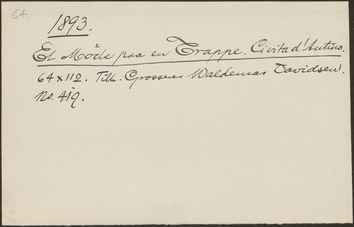 64
1893.
Et Møde paa en Trappe. Civita d'Antino.
64 x 112. Till. Grosserer Waldemar Davidsen.
No. 419.